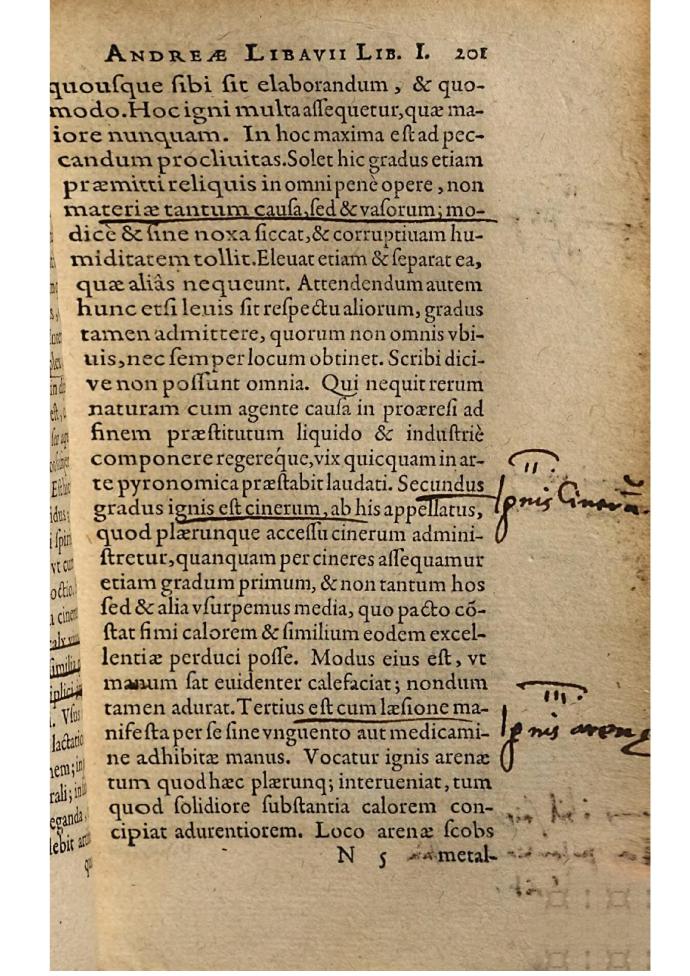 ANDREÆ LIBAVII LIB. I. 201
quouſque ſibi ſit elaborandum, & quo-
modo. Hoc igni multa aſſequetur, quæ ma-
iore nunquam. In hoc maxima eſt ad pec-
candum procliuitas. Solet hic gradus etiam
præmitti reliquis in omni penè opere, non
materiæ tantum cauſa, ſed & vaſorum; mo-
dicè & ſine noxa ſiccat, & corruptiuam hu-
miditatem tollit. Eleuat etiam & ſeparat ea,
quæ aliâs nequeunt. Attendendum autem
hunc etſi lenis ſit reſpectu aliorum, gradus
tamen admittere, quorum non omnis vbi-
uis, nec ſemper locum obtinet. Scribi dici-
ve non poſſunt omnia. Qui nequit rerum
naturam cum agente cauſa in proæreſi ad
finem præſtitutum liquido & induſtriè
componere regereq́ue, vix quicquam in ar-
te pyronomica præſtabit laudati. Secundus
gradus ignis eſt cinerum, ab his appellatus,
quod plærunque acceſſu cinerum admini-
ſtretur, quanquam per cineres aſſequamur
etiam gradum primum, & non tantum hos
ſed & alia vſurpemus media, quo pacto cō-
ſtat fimi calorem & ſimilium eodem excel-
lentiæ perduci poſſe. Modus eius eſt, vt
manum ſat euidenter calefaciat; nondum
tamen adurat. Tertius eſt cum læſione ma-
nifeſta per ſe ſine vnguento aut medicami-
ne adhibitæ manus. Vocatur ignis arenæ
tum quod hæc plærunq; interueniat, tum
quod ſolidiore ſubſtantia calorem con-
cipiat adurentiorem. Loco arenæ ſcobs
N 5 metal-
II.
Ignis Cinerū.
III.
Ignis arenæ